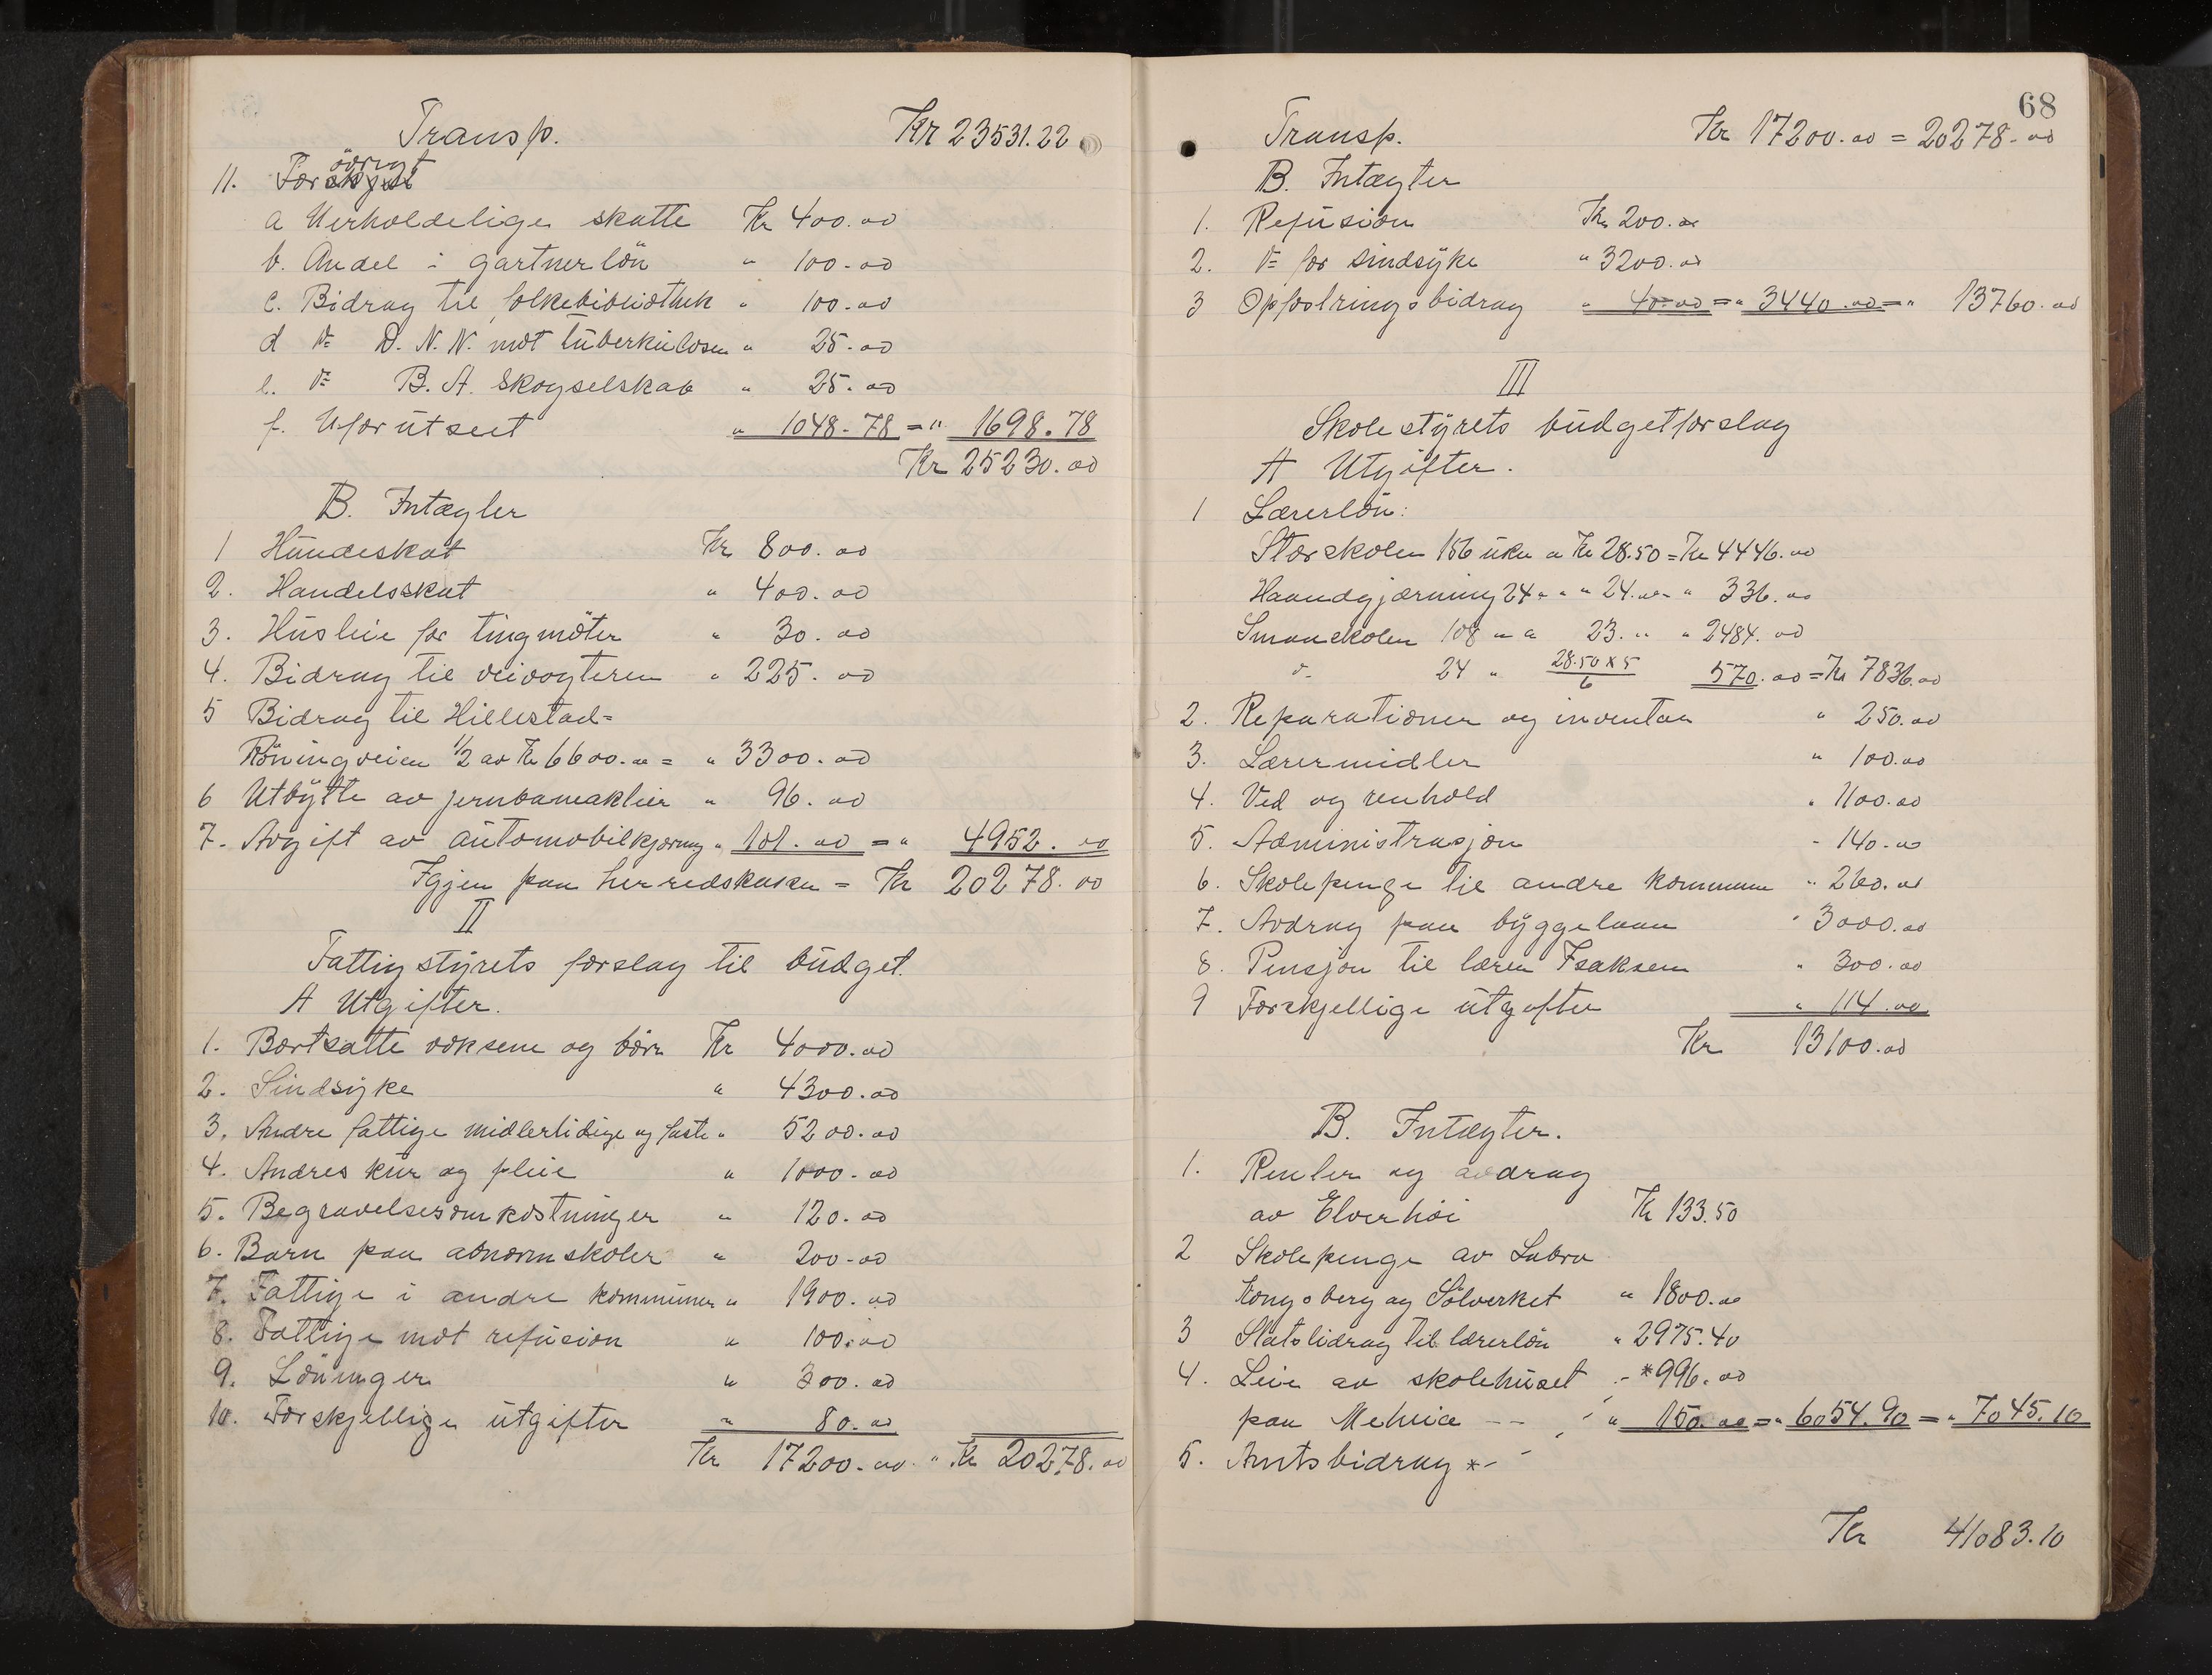 Transp. Kr 23531.22
11. For øvrigt
a Uerholdelige skatte Kr 400.00
b. Andel i gartnerlön " 100.00
c. Bidrag til folkebibliothek " 100.00
d do D. N. N. mot tuberkulosen " 25.00
e. do B. A. Skogselskab " 25.00
f. Uforutseet " 1048.78 = " 1698.78
Kr 25230.00
B. Intægter
1 Hundeskat Kr 800.00
2. Handelsskat " 400.00
3. Husleie for tingmöter " 30.00
4. Bidrag til veivogteren " 225.00
5 Bidrag til Hillestad-
Röningveien 1/2 av Kr 6600.00 = " 3300.00
6 Utbytte av jernbaneaktier " 96.00
7. Avgift av automobilkjøring " 101.00 = " 4952.00
Igjen paa herredskassen = Kr 20278.00
II
Fattigstyrets forslag til budget.
A Utgifter.
1. Bortsatte voksene og børn Kr 4000.00
2. Sindsyke " 4300.00
3. Andre fattige midlertidige og faste " 5200.00
4. Andres kur og pleie " 1000.00
5. Begravelsesomkostninger " 120.00
6. Barn paa abnormskoler " 200.00
7. Fattige i andre kommuner " 1900.00
8. Fattige mot refusion " 100.00
9. Löninger " 300.00
10. Forskjellige utgifter " 80.00
Kr 17200.00 " Kr 20278.00
68
Transp. Kr 17200.00 = 20278.00
B. Intægter
1. Refusion Kr 200.00
2. do for sindsyke " 3200.00
3 Opfostringsbidrag " 40.00 = " 3440.00 = " 13760.00
III
Skolestyrets budgetforslag
A Utgifter.
1 Lærerlön:
Storskolen 156 uker a Kr 28.50 = Kr 4446.00
Haandgjærning 24 " " " 24.00 " " 336.00
Smaaskolen 108 " a 23. " " 2484.00
do 24 " 28.50 x 5 / 6 570.00 = Kr 7836.00
2. Reparationer og inventar " 250.00
3. Lærermidler " 100.00
4. Ved og renhold " 1100.00
5. Administrasjon " 140.00
6. Skolepenge til andre kommuner " 260.00
7. Avdrag paa byggelaan " 3000.00
8. Pensjon til lærer Isaksen " 300.00
9 Forskjellige utgifter " 114.00
Kr 13100.00
B. Intægter.
1. Renter og avdrag
av Elverhöi Kr 133.50
2 Skolepenge av Labro
Kongsberg og Sölverket " 1800.00
3 Statsbidrag til lærerlön " 2975.40
4. Leie av skolehuset *996.00
paa Meheia -- " 150.00 = " 6054.90 = " 7045.10
5. Amtsbidrag *-
Kr 41083.10